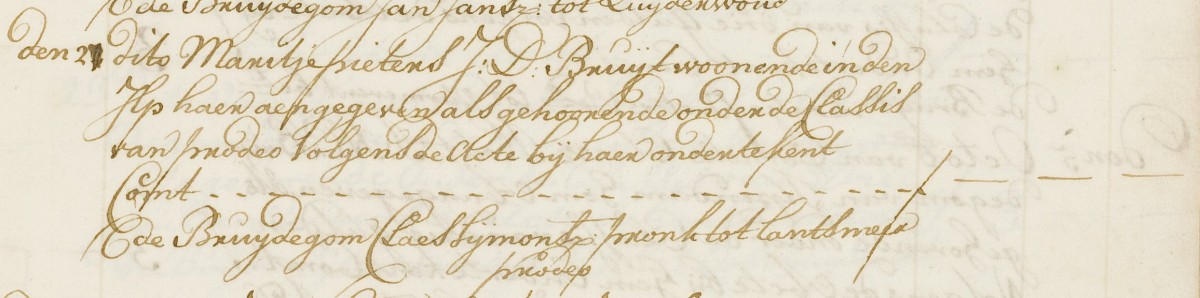 E de Bruydegom Jan Jansz: tot Zuyderwoud
den 21 dito Maritje pieters J: D: Bruijt woonende in den
Ilp haer aengegeven als gehoorende onder de Classis
van prodeo Volgens de Acte bij haer ondertekent
Comt - - - - - - - - - - - - - - - - - - - - / — — —
E de Bruydegom Claes Sijmonsz: pronk tot lantsmeer
prodeo